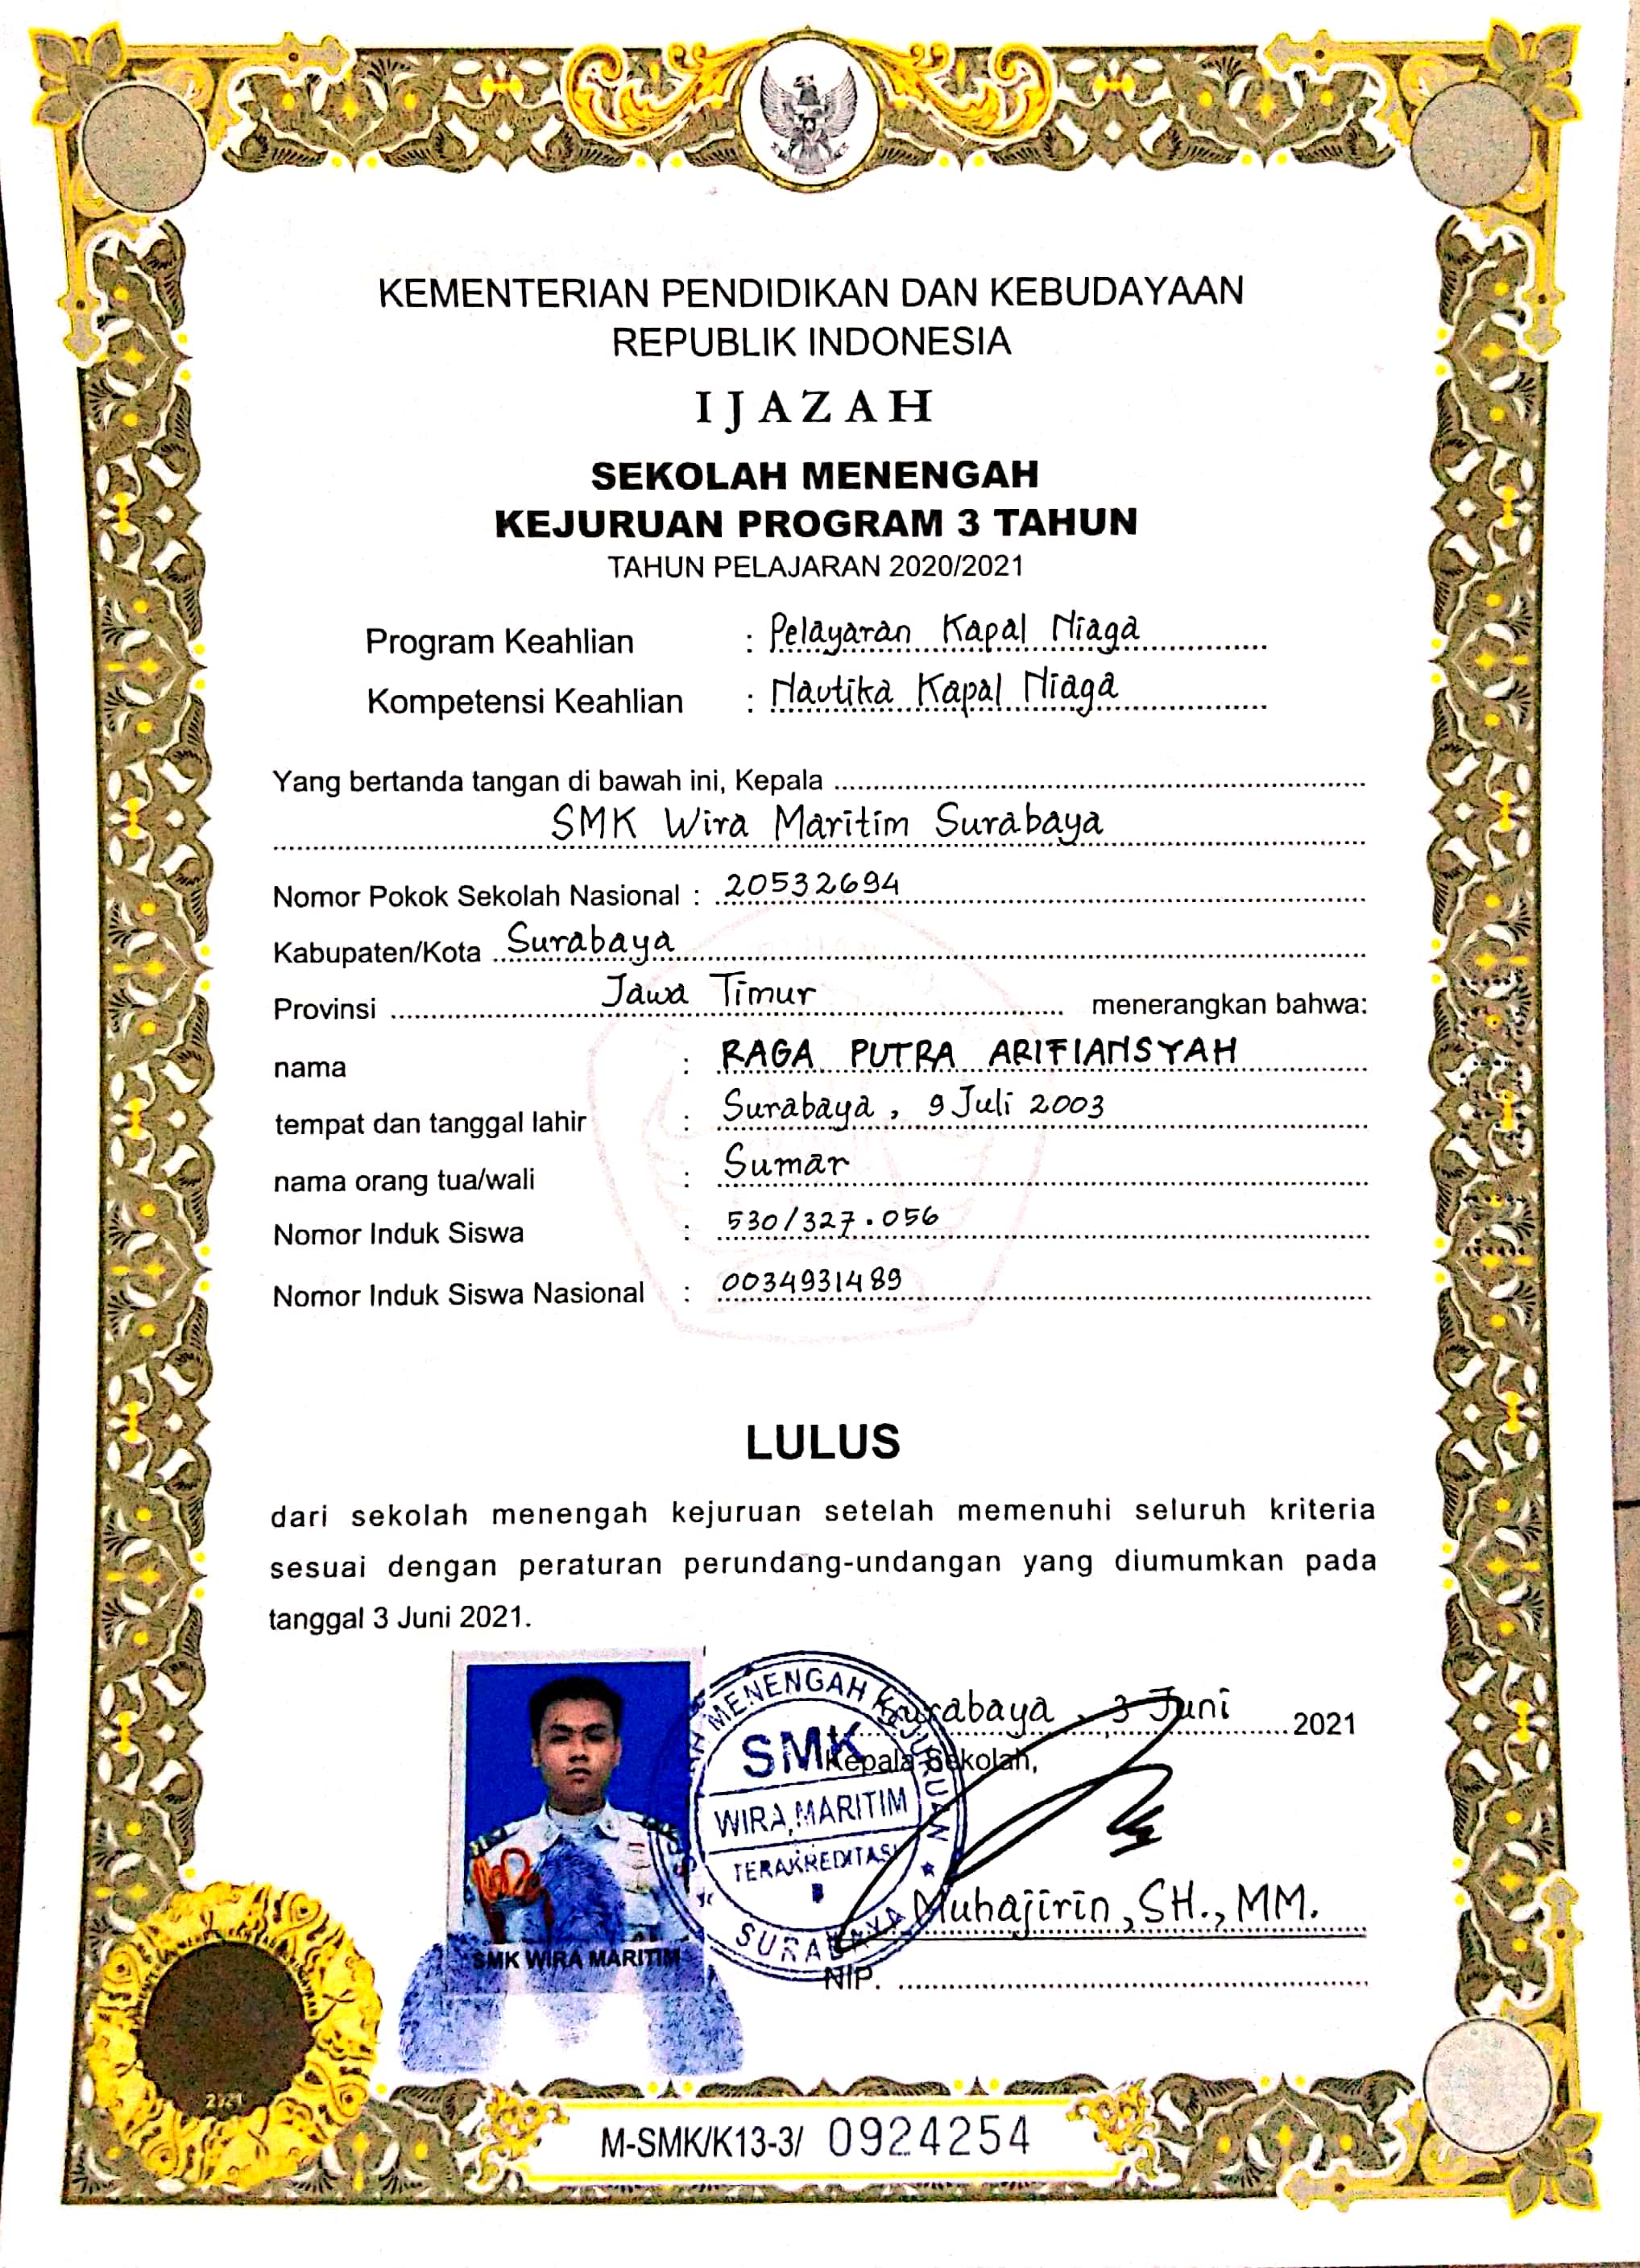 KEMENTERIAN PENDIDIKAN DAN KEBUDAYAAN
REPUBLIK INDONESIA
IJAZAH
SEKOLAH MENENGAH
KEJURUAN PROGRAM 3 TAHUN
TAHUN PELAJARAN 2020/2021
Program Keahlian : Pelayaran Kapal Niaga
Kompetensi Keahlian : Nautika Kapal Niaga
Yang bertanda tangan di bawah ini, Kepala
SMK Wira Maritim Surabaya
Nomor Pokok Sekolah Nasional : 20532694
Kabupaten/Kota Surabaya
Provinsi Jawa Timur menerangkan bahwa:
nama : RAGA PUTRA ARIFIANSYAH
tempat dan tanggal lahir : Surabaya, 9 Juli 2003
nama orang tua/wali : Sumar
Nomor Induk Siswa : 530/327.056
Nomor Induk Siswa Nasional : 0034931489
LULUS
dari sekolah menengah kejuruan setelah memenuhi seluruh kriteria
sesuai dengan peraturan perundang-undangan yang diumumkan pada
tanggal 3 Juni 2021.
Surabaya, 3 Juni 2021
Kepala Sekolah,
MENENGAH KEJURUAN
SMK
WIRA MARITIM
TERAKREDITASI
SURABAYA
Muhajirin, SH., MM.
SMK WIRA MARITIM
NIP.
2021
M-SMK/K13-3/ 0924254